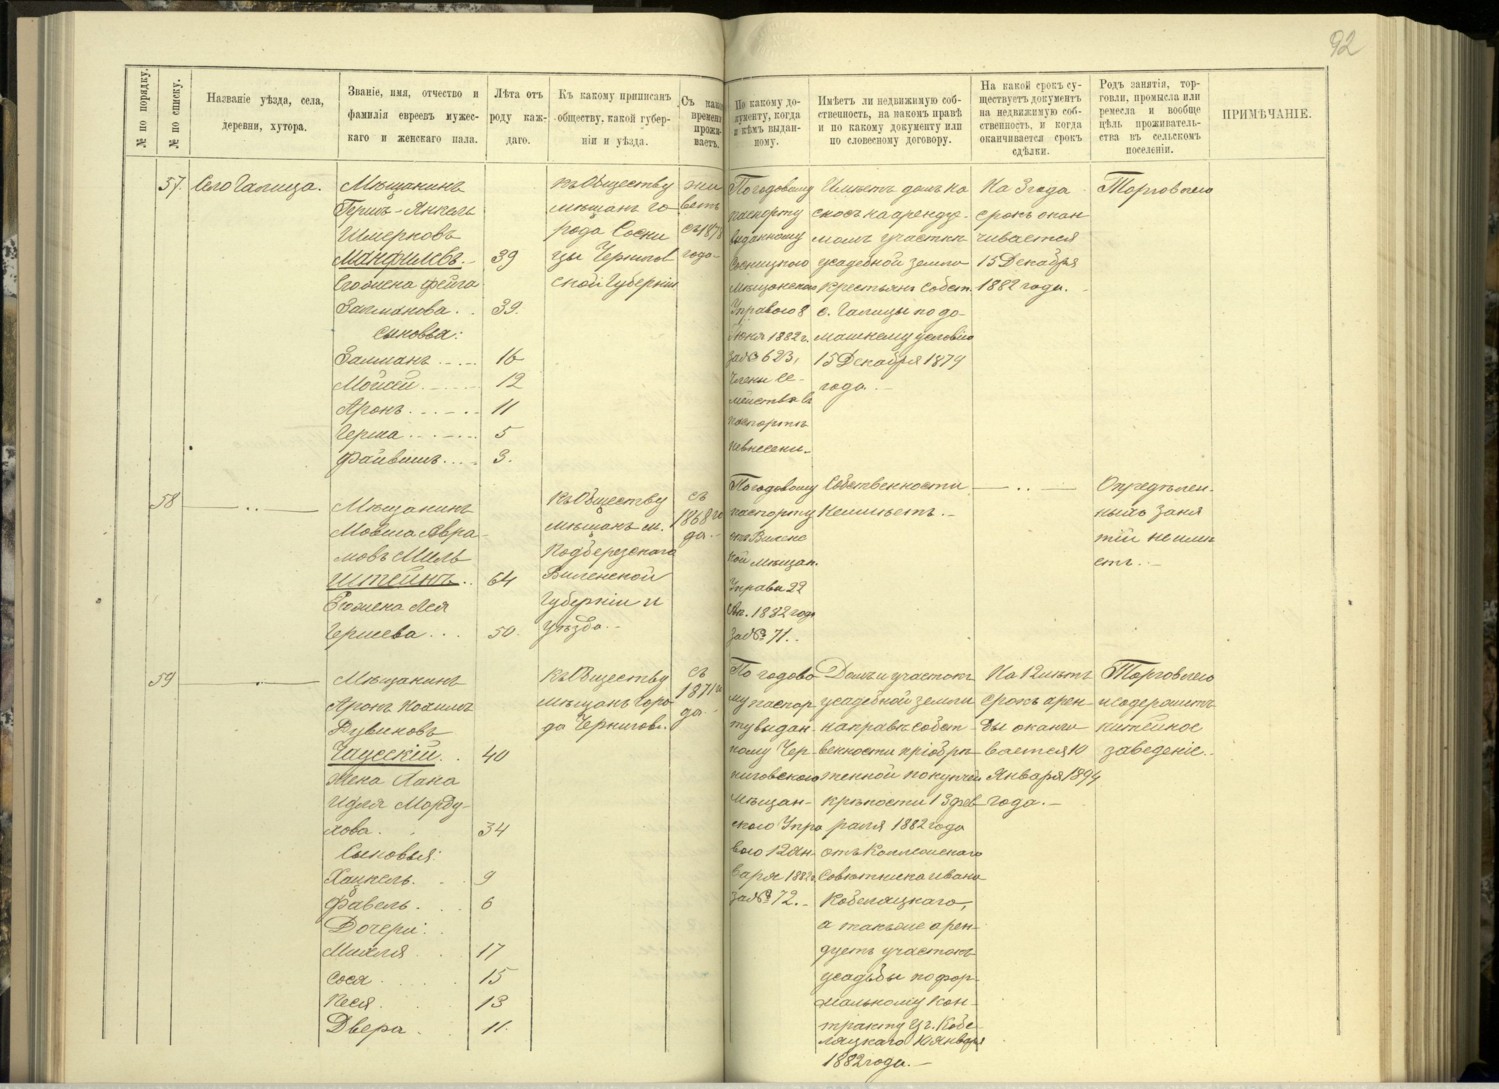 92
№ по порядку.
№ по списку.
Названіе уѣзда, села,
деревни, хутора.
Званіе, имя, отчество и
фамилія евреевъ мужес-
каго и женскаго пала.
Лѣта отъ
роду каж-
даго.
Къ какому приписанъ
обществу, какой губер-
ніи и уѣзда.
Съ како
времени
прожи-
ваетъ.
По какому до-
кументу, когда
и кѣмъ выдан-
ному.
Имѣетъ ли недвижимую соб-
ственность, на какомъ правѣ
и по какому документу или
по словесному договору.
На какой срокъ су-
ществуетъ документъ
на недвижимую соб-
ственность, и когда
оканчивается срокъ
сдѣлки.
Родъ занятія, тор-
говли, промысла или
ремесла и вообще
цѣль проживатель-
ства въ сельскомъ
поселеніи.
ПРИМѢЧАНІЕ.
57.
Село Галица.
Мѣщанинъ
Гершъ-Янкель
Шмерковъ
Манфилевъ.
Его жена Фейга
Залманова.
сыновья:
Залманъ
Мойсей
Аронъ
Герша
Файвишъ
39
39.
16
12
11
5
3.
Къ Обществу
мѣщанъ го-
рода Сосни
цы Чернигов
ской Губерніи
жи
ветъ
съ 1878
года
По годовому
паспорту
выданному
Сосницкого
Мѣщанского
Управого 8
Іюня 1882 г.
за № 623,
Члены се-
мейства въ
паспортъ
невнесени.
Имѣетъ домъ на
сносъ на арендуе-
момъ участкѣ
усадебной земли
Крестьянъ Собст.
с. Галицы по до-
машнему условію
15 Декабря 1879
года.
На 3 года
срокъ окан
чивается
15 Декабря
1882 года.
Торговлею
58
Мѣщанинъ
Мовша Авра-
мовъ Миль
Штейнъ.
Его жена Лея
Гершева
64
50.
Къ Обществу
мѣщанъ м.
Подберезскаго
Виленской
Губерніи и
уѣзда.
съ
1868 го
да.
По годовому
паспорту
изъ Виленс
кой мѣщан.
Управы 22
1882 года
за № 71.
Собственности
Неимѣетъ.
Опредѣлен-
ныхъ заня
тій не имѣ
етъ.
59
Мѣщанинъ
Аронъ
Рувиновъ
Чаусскій.
Жена Хана
Идля Морду-
хова.
Сыновья:
Хацкель.
Фавель.
Дочери:
Михля
Сося
Песя
Двера
40
34
9
6
17
15
13
11.
Къ Обществу
мѣщанъ горо-
да Чернигова.
съ
1871 го
да
По годово
му паспор
ту выдан
ному Чер
ниговского
Мѣщан-
ского Упра
вого 12 Ян-
варя 1882 г.
за № 72.
Домъ и участокъ
усадебной земли
на правѣ собст
венности пріобрѣ
тенной покупчей
крѣпости 13 фев
раля 1882 года
отъ Коллежскаго
Совѣтника Ивана
Кобеляцкаго,
а также арен-
дуетъ участокъ
усадьбы по фор-
мальному кон-
тракту и г. Кобе-
ляцкаго 10 Января
1882 года.
На 12 лѣтъ
срокъ арен-
ды оканчи
вается 10
Января 1894
года.
Торговлею
и содержитъ
питейное
заведеніе.